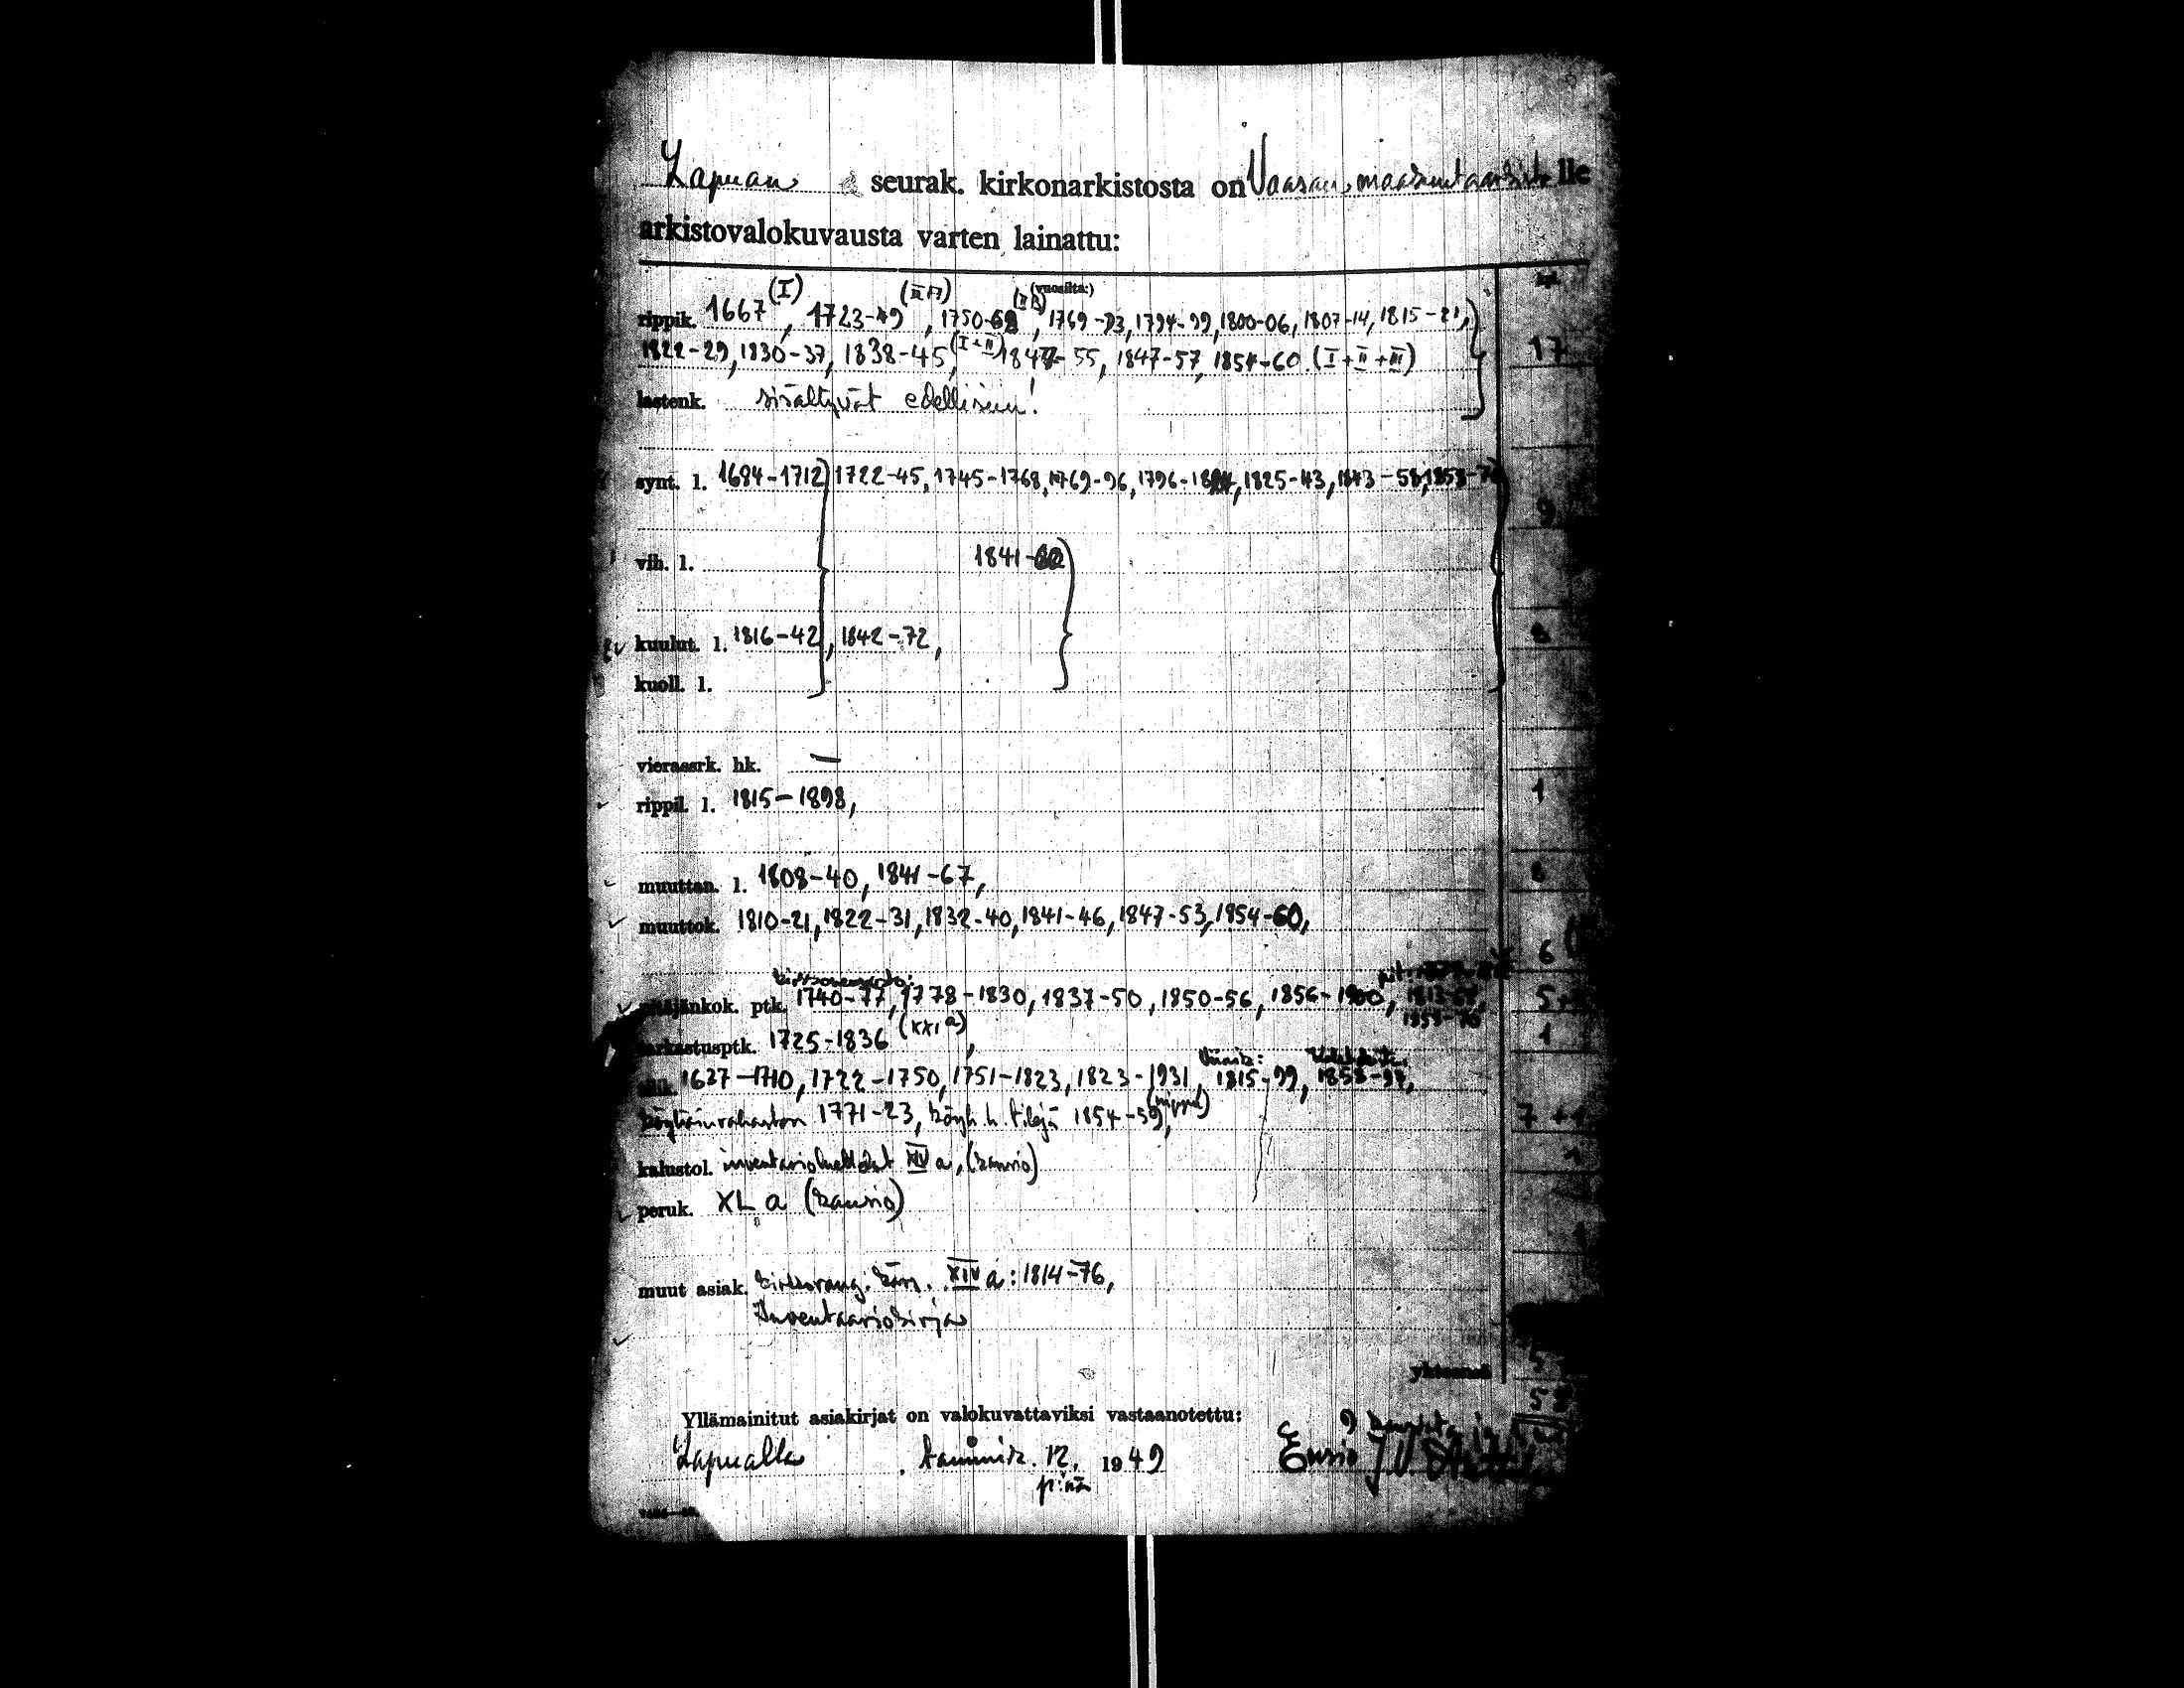 Lapuan seurak. kirkonarkistosta on Vaasan maakunta-arkistolle
arkistovalokuvausta varten lainattu:
(vuosilta:)
rippik. 1667 (I), 1723-49 (II A), 1750-68 (II B), 1769-93, 1794-99, 1800-06, 1807-14, 1815-21, 17
1822-29, 1830-37, 1838-45 (I+II), 1847-55, 1847-57, 1854-60 (I+II+III)
lastenk. sisältyvät edellisiin!
synt. l. 1684-1712, 1722-45, 1745-1768, 1769-96, 1796-1824, 1825-43, 1843-58, 1858- 9
vih. l. 1841-60
kuulut. l. 1816-42, 1842-72,
kuoll. l.
vierassrk. hk. —
rippil. l. 1815-1898, 1
muuttan. l. 1808-40, 1841-67,
muuttok. 1810-21, 1822-31, 1832-40, 1841-46, 1847-53, 1854-60, 6
pitäjänkok. ptk. 1740-77, 1778-1830, 1837-50, 1850-56, 1856-1900, 5
tarkastusptk. 1725-1836 (XXI a), 1
tilik. 1637-1710, 1722-1750, 1751-1823, 1823-1931, 1815-99, 1858-97,
köyhäinrahaston 1771-23, köyh. h. tilejä 1854-59, 7
kalustol. inventarioluettelot XIV a, (kansio)
peruk. XL a (kansio)
muut asiak. kirkkorang. XIV a: 1814-76,
Inventaariokirja
yhteensä
Yllämainitut asiakirjat on valokuvattaviksi vastaanotettu:
Lapualla, tammik. 12. p:nä 1949 Ensio